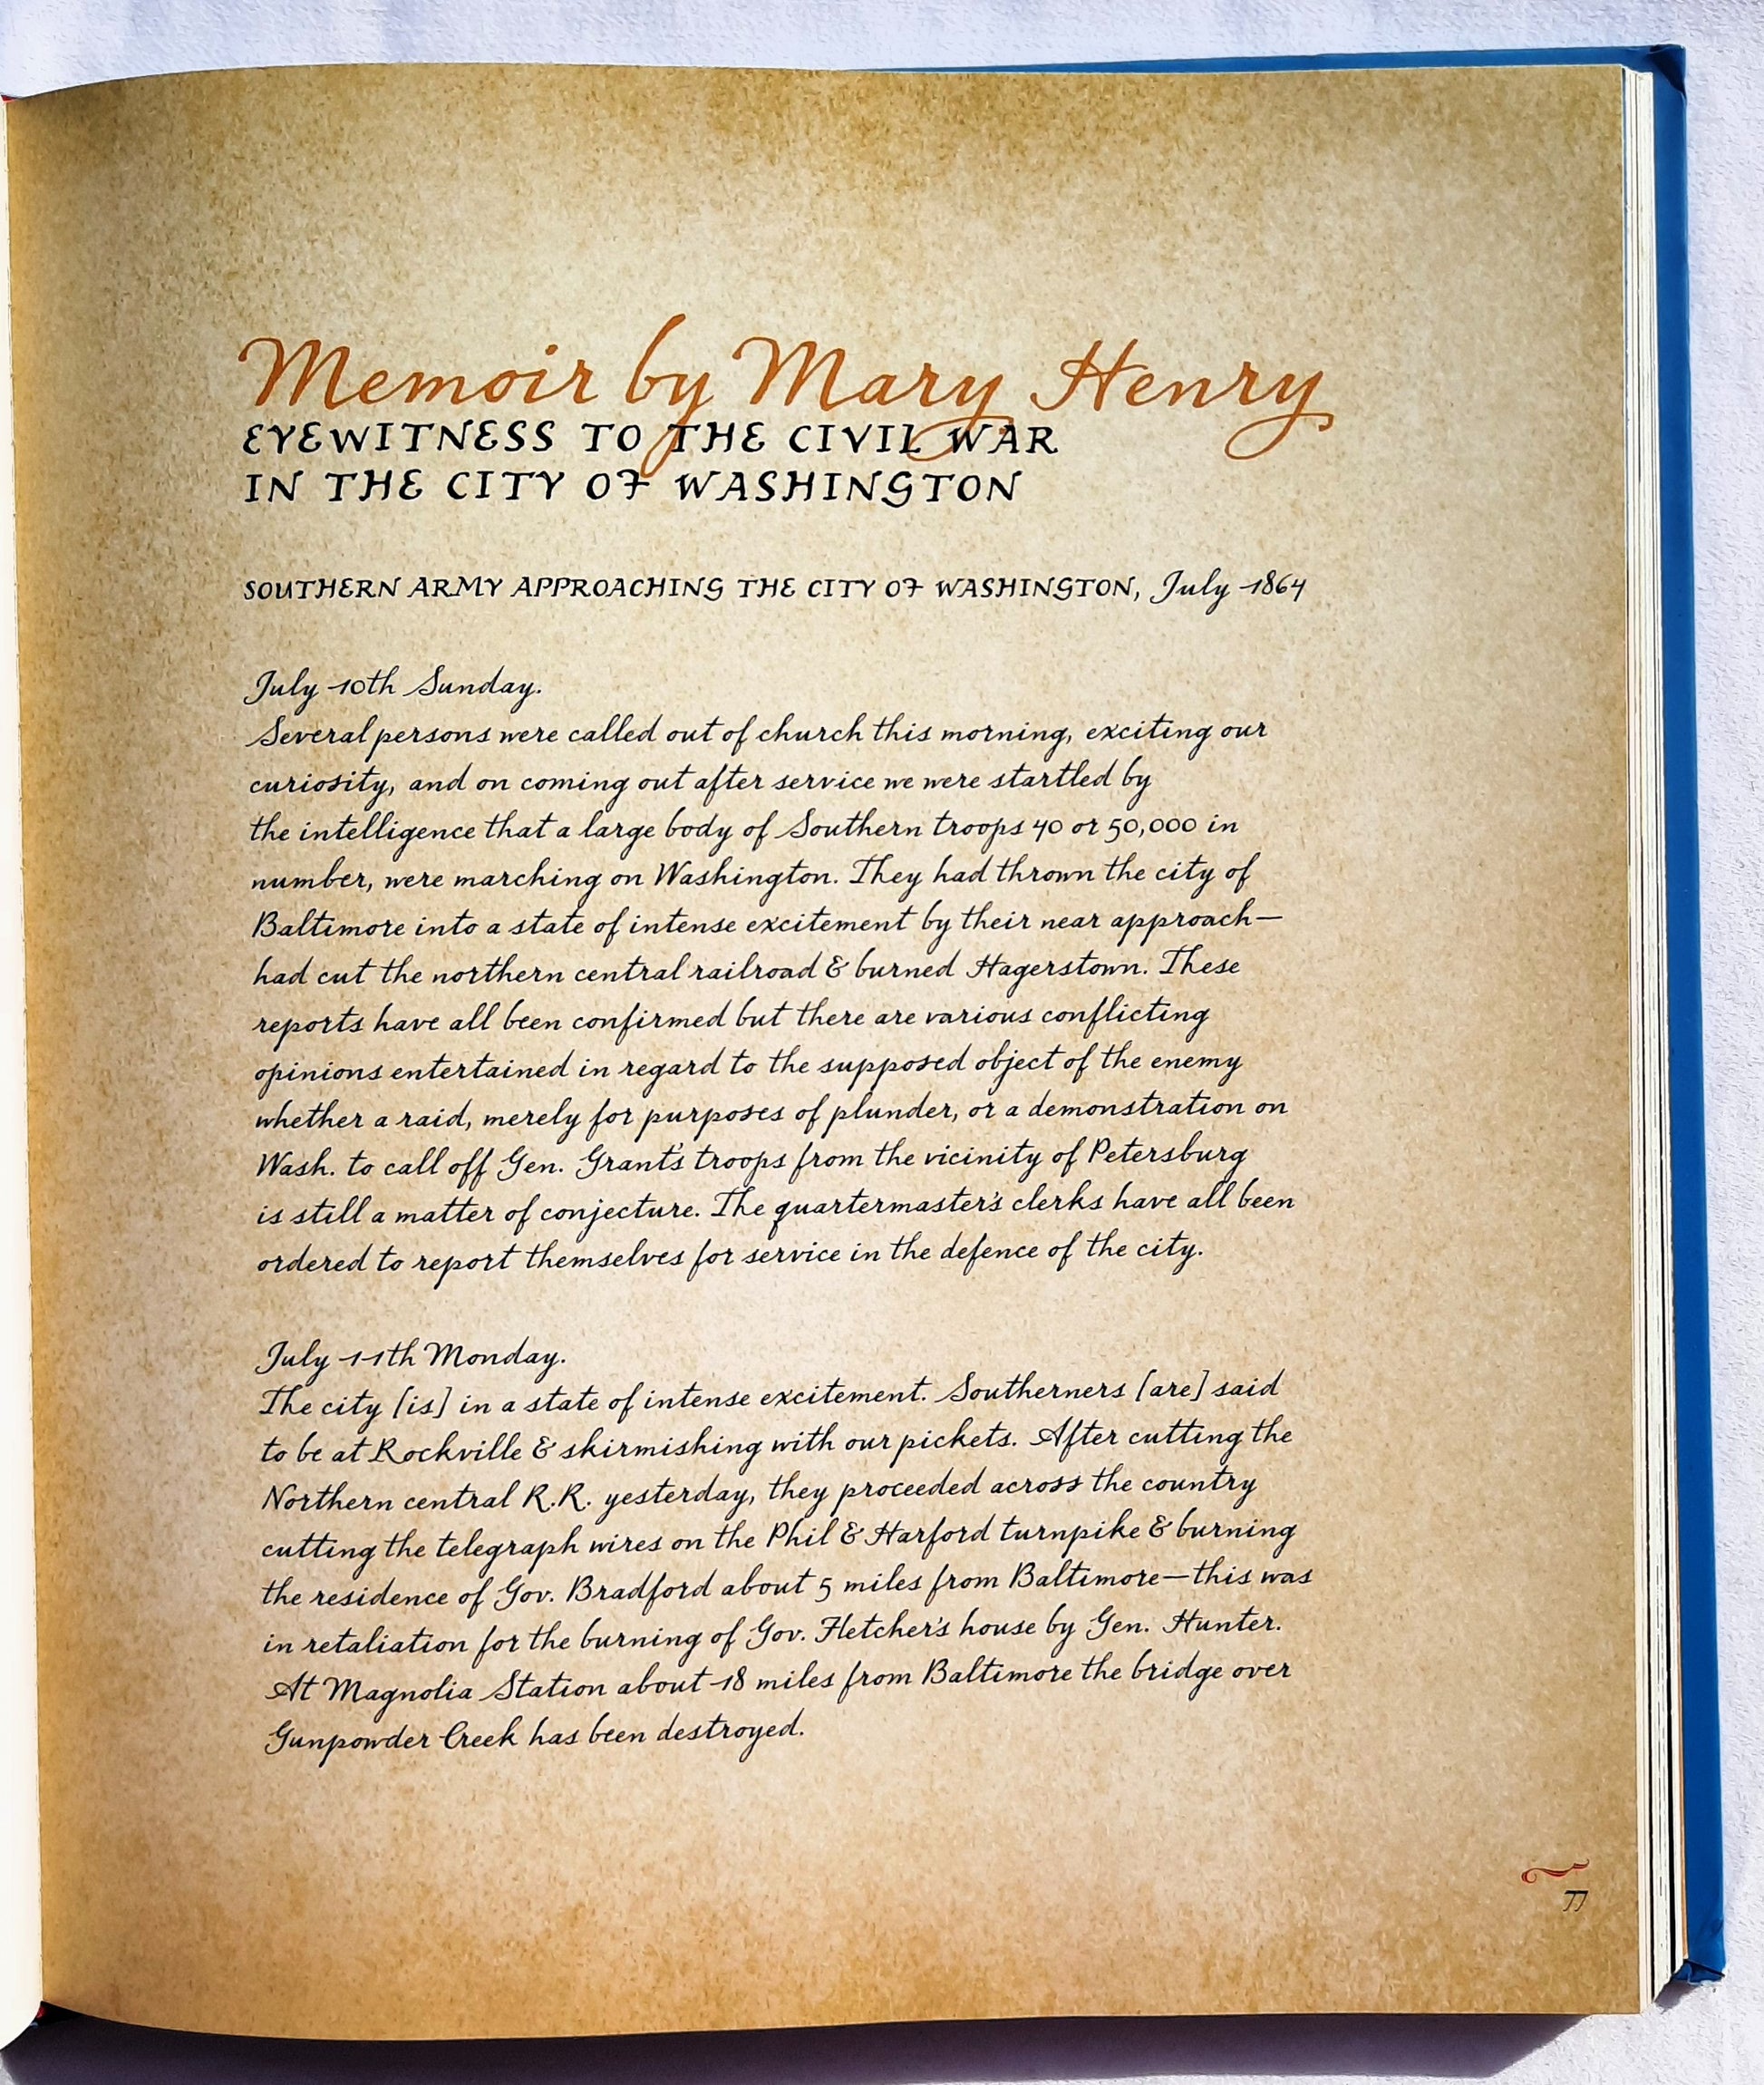 Memoir by Mary Henry
EYEWITNESS TO THE CIVIL WAR
IN THE CITY OF WASHINGTON
SOUTHERN ARMY APPROACHING THE CITY OF WASHINGTON, July 1864
July 10th Sunday.
Several persons were called out of church this morning, exciting our
curiosity, and on coming out after service we were startled by
the intelligence that a large body of Southern troops 40 or 50,000 in
number, were marching on Washington. They had thrown the city of
Baltimore into a state of intense excitement by their near approach—
had cut the northern central railroad & burned Hagerstown. These
reports have all been confirmed but there are various conflicting
opinions entertained in regard to the supposed object of the enemy
whether a raid, merely for purposes of plunder, or a demonstration on
Wash. to call off Gen. Grant's troops from the vicinity of Petersburg
is still a matter of conjecture. The quartermaster's clerks have all been
ordered to report themselves for service in the defence of the city.
July 11th Monday.
The city [is] in a state of intense excitement. Southerners [are] said
to be at Rockville & skirmishing with our pickets. After cutting the
Northern central R.R. yesterday, they proceeded across the country
cutting the telegraph wires on the Phil & Harford turnpike & burning
the residence of Gov. Bradford about 5 miles from Baltimore—this was
in retaliation for the burning of Gov. Fletcher's house by Gen. Hunter.
At Magnolia Station about 18 miles from Baltimore the bridge over
Gunpowder Creek has been destroyed.
77